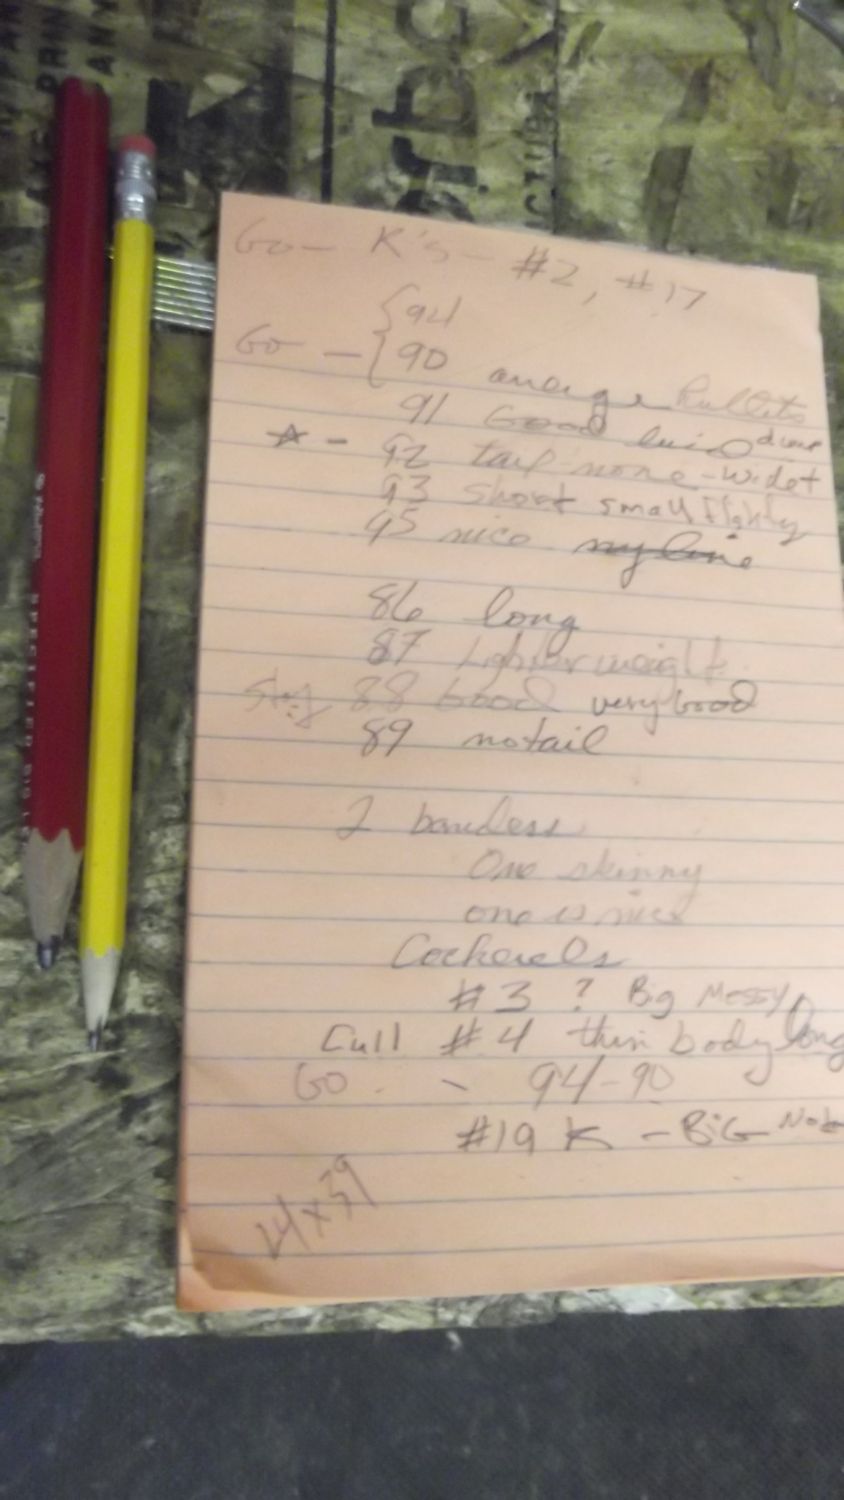 Go - K's - #2, #17
94
Go - 90 average Pullets
91 Good
☆ - 92 tail none - widet
93 short small flighty
95 nice
86 long
87 Lighter weight
88 Good very Good
89 no tail
2 bandless
One skinny
one is nice
Cockerels
#3 ? Big Messy
Cull #4 thin body long
GO - 94-90
#19 K - BiG
24x39